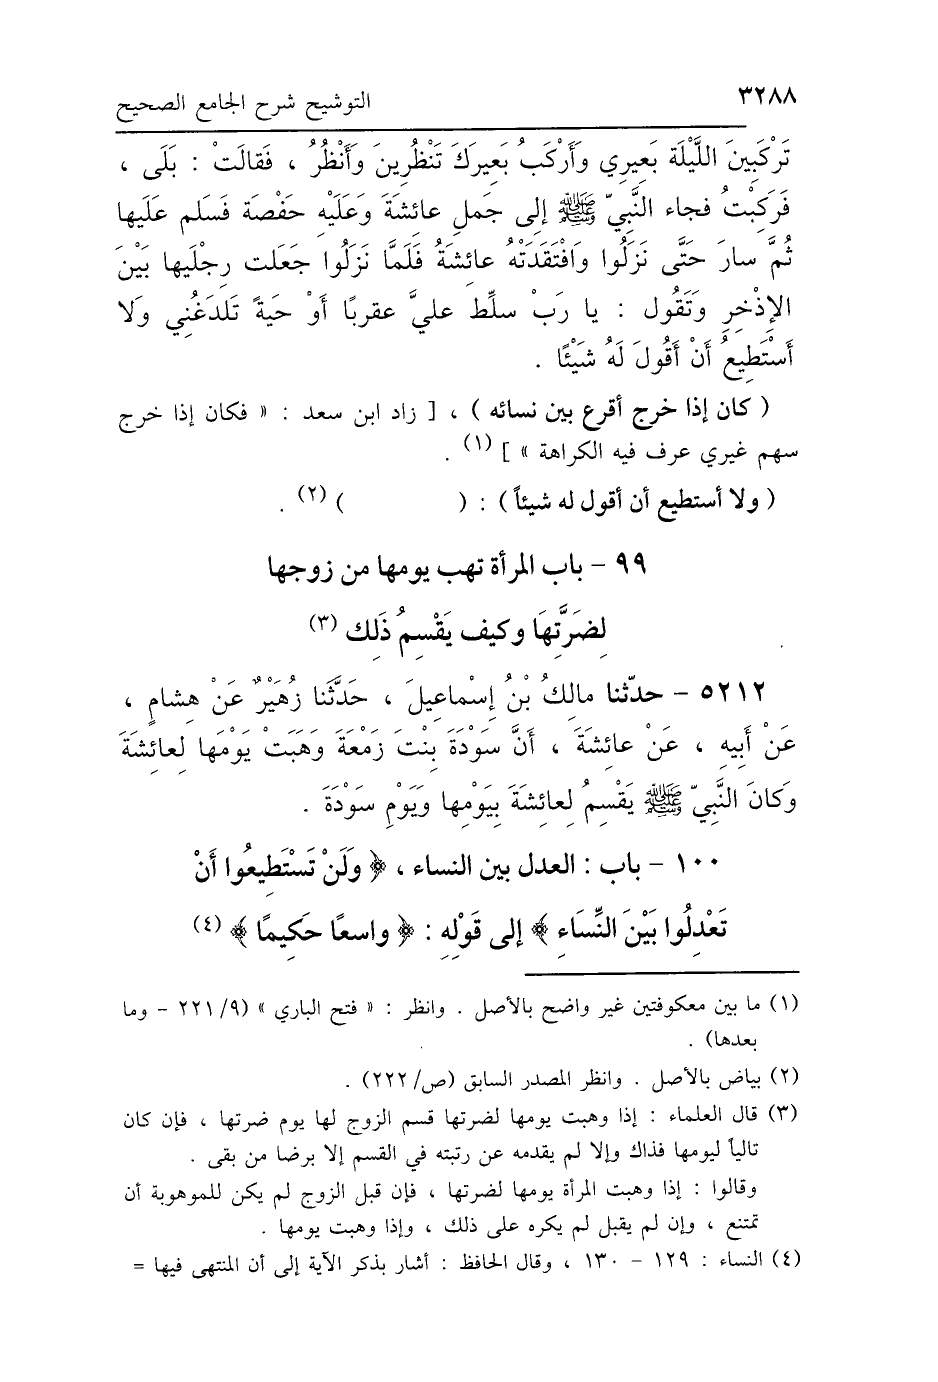 ٣٢٨٨ التوشيح شرح الجامع الصحيح
تَرْكَبِينَ اللَّيْلَةَ بَعِيرِي وَأَرْكَبُ بَعِيرَكَ تَنْظُرِينَ وَأَنْظُرُ ، فَقالَتْ : بَلَى ،
فَرَكِبْتُ فجاء النَّبِيّ ﷺ إلى جَملِ عائشَةَ وَعَلَيْهِ حَفْصَة فَسَلم عَلَيها
ثُمَّ سارَ حَتَّى نَزَلُوا وَافْتَقَدَتْهُ عائِشَةُ فَلمَّا نَزَلُوا جَعَلت رِجْلَيها بَيْنَ
الإِذْخِرِ وَتَقُول : يا رَبْ سلِّط عليَّ عقربًا أَوْ حيَةً تَلدَغُنِي وَلا
أَسْتَطِيعُ أَنْ أَقُولَ لَهُ شَيْئًا .
( كان إذا خرج أقرع بين نسائه ) ، [ زاد ابن سعد : « فكان إذا خرج
سهم غيري عرف فيه الكراهة » ] (١) .
( ولا أستطيع أن أقول له شيئاً ) : ( ) (٢) .
٩٩ – باب المرأة تهب يومها من زوجها
لِضَرَّتِهَا وكيف يَقْسِمُ ذَلِك (٣)
٥٢١٢ – حدّثنا مالِكُ بْنُ إِسْماعِيلَ ، حَدَّثَنا زُهَيْرٌ عَنْ هِشامٍ ،
عَنْ أَبِيهِ ، عَنْ عائِشَةَ ، أَنَّ سَوْدَةَ بِنْتَ زَمْعَةَ وَهَبَتْ يَوْمَها لِعائِشَةَ
وَكانَ النَّبِيّ ﷺ يَقْسِمُ لِعائِشَةَ بِيَوْمِها وَيَوْمِ سَوْدَةَ .
١٠٠ – باب : العدل بين النساء ، ﴿ وَلَنْ تَسْتَطِيعُوا أَنْ
تَعْدِلُوا بَيْنَ النِّسَاءِ ﴾ إلى قَوْلِهِ : ﴿ واسعًا حَكِيمًا ﴾ (٤)
(١) ما بين معكوفتين غير واضح بالأصل . وانظر : « فتح الباري » (٩/ ٢٢١ – وما
بعدها) .
(٢) بياض بالأصل . وانظر المصدر السابق (ص/ ٢٢٢) .
(٣) قال العلماء : إذا وهبت يومها لضرتها قسم الزوج لها يوم ضرتها ، فإن كان
تالياً ليومها فذاك وإلا لم يقدمه عن رتبته في القسم إلا برضا من بقى .
وقالوا : إذا وهبت المرأة يومها لضرتها ، فإن قبل الزوج لم يكن للموهوبة أن
تمتنع ، وإن لم يقبل لم يكره على ذلك ، وإذا وهبت يومها .
(٤) النساء : ١٢٩ – ١٣٠ ، وقال الحافظ : أشار بذكر الآية إلى أن المنتهى فيها =